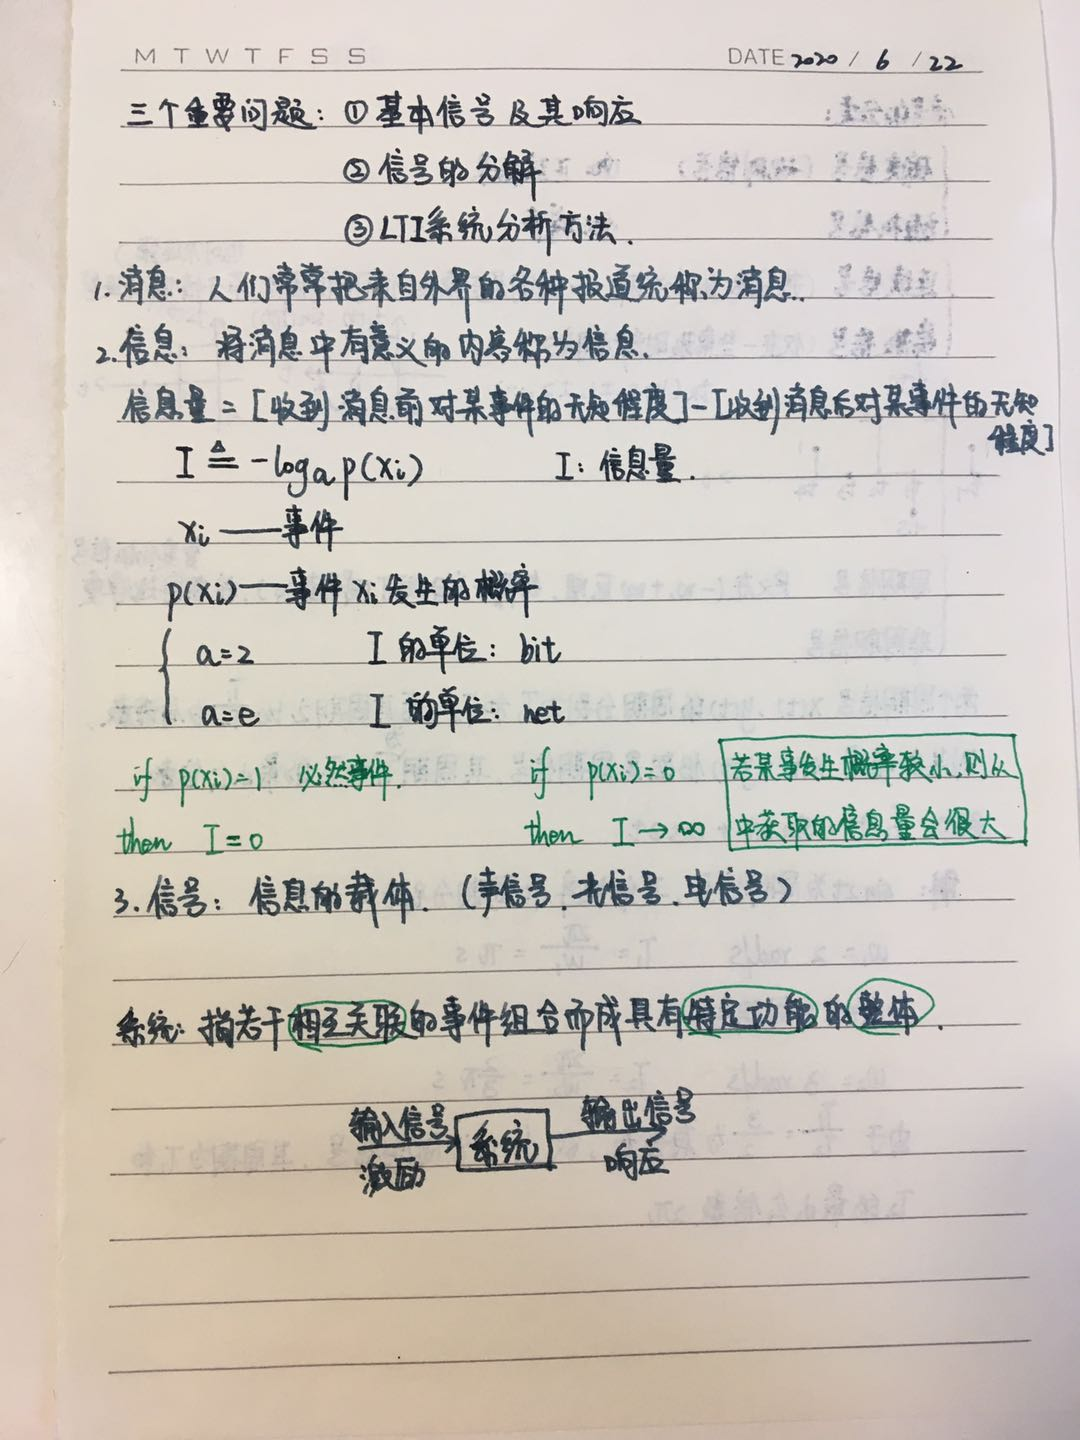 M T W T F S S DATE 2020 / 6 / 22
三个重要问题：①基本信号及其响应
②信号的分解
③LTI系统分析方法.
1.消息：人们常常把来自外界的各种报道统称为消息.
2.信息：将消息中有意义的内容称为信息.
信息量=[收到消息前对某事件的无知程度]-[收到消息后对某事件的无知
程度]
I ≜ -logₐ p(xi) I：信息量.
xi ——事件
p(xi)——事件xi发生的概率
a=2 I的单位：bit
a=e I的单位：net
if p(xi)=1 必然事件. if p(xi)=0 若某事发生概率较小,则从
then I=0 then I→∞ 中获取的信息量会很大
3.信号：信息的载体.（声信号.光信号.电信号）
系统：指若干相互关联的事件组合而成具有特定功能的整体.
输入信号 系统 输出信号
激励 响应